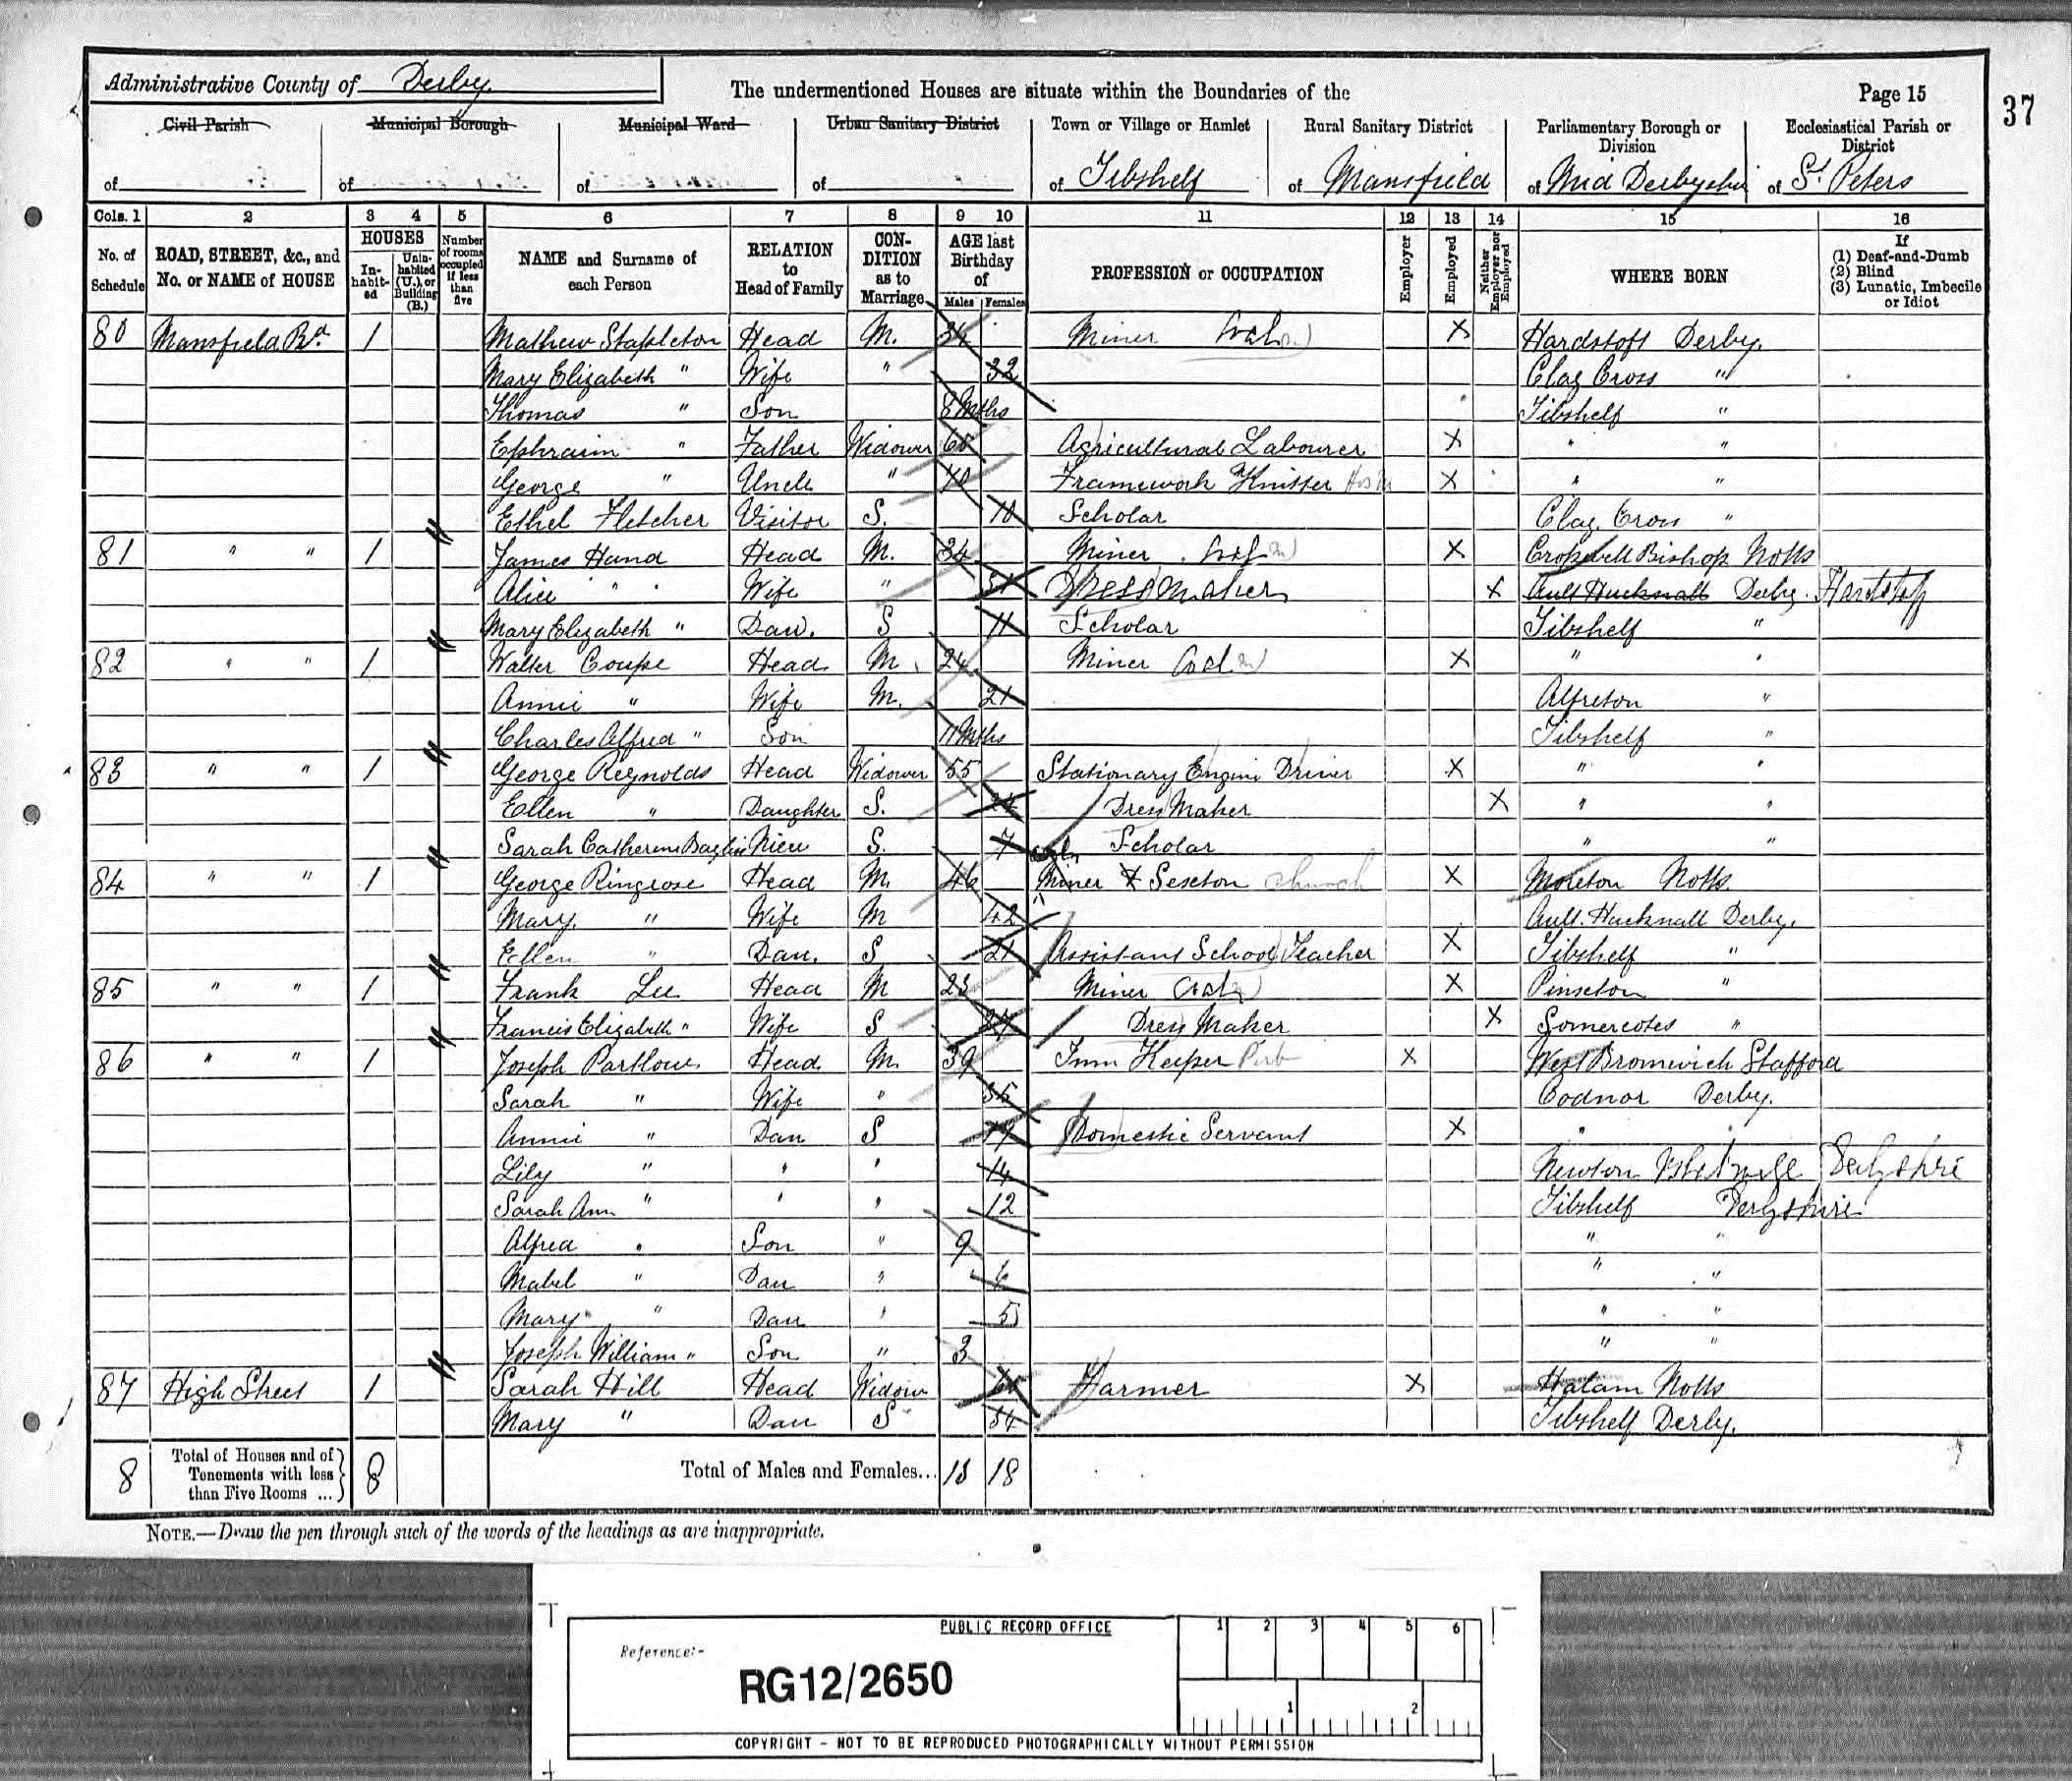 Administrative County of Derby
The undermentioned Houses are situate within the Boundaries of the
Page 15
37
Civil Parish Municipal Borough Municipal Ward Urban Sanitary District Town or Village or Hamlet Rural Sanitary District Parliamentary Borough or Division Ecclesiastical Parish or District
of of of of of Tibshelf of Mansfield of Mid Derbyshire of St. Peters
Cols. 1 2 3 4 5 6 7 8 9 10 11 12 13 14 15 16
No. of Schedule ROAD, STREET, &c., and No. or NAME of HOUSE HOUSES In-habit-ed Unin-habited (U.), or Building (B.) Number of rooms occupied if less than five NAME and Surname of each Person RELATION to Head of Family CON-DITION as to Marriage AGE last Birthday of Males Females PROFESSION or OCCUPATION Employer Employed Neither Employer nor Employed WHERE BORN If (1) Deaf-and-Dumb (2) Blind (3) Lunatic, Imbecile or Idiot
80 Mansfield Rd 1 Mathew Stapleton Head M. Miner Coal X Hardstoft Derby.
Mary Elizabeth " Wife " 32 Clay Cross "
Thomas " Son 8 Mths Tibshelf "
Ephraim " Father Widower Agricultural Labourer X " "
George " Uncle " 70 Framework Knitter X " "
Ethel Fletcher Visitor S. 10 Scholar Clay Cross "
81 " " 1 James Hand Head M. 34 Miner X Cropwell Bishop Notts
Alice " Wife " Dress Maker X Ault Hucknall Derby. Hardstoft
Mary Elizabeth " Dau. S 11 Scholar Tibshelf "
82 " " 1 Walter Coupe Head M. 24 Miner Coal X " "
Annie " Wife M. 21 Alfreton "
Charles Alfred " Son 11 Mths Tibshelf "
83 " " 1 George Reynolds Head Widower 55 Stationary Engine Driver X " "
Ellen " Daughter S. Dress Maker X " "
Sarah Catherine Niece S. 7 Scholar " "
84 " " 1 George Ringrose Head M. 46 Miner & Sexton Church X Moreton Notts.
Mary. " Wife M 42 Ault. Hucknall Derby.
Ellen " Dau. S 21 Assistant School Teacher X Tibshelf "
85 " " 1 Frank Lee Head M 23 Miner Coal X Pinxton "
Francis Elizabeth " Wife S Dress Maker X Somercotes "
86 " " 1 Joseph Partlow Head M. 39 Inn Keeper Pub X West Bromwich Stafford
Sarah " Wife " 35 Codnor Derby.
Annie " Dau S Domestic Servant X "
Lily " " " 14 Newton Derbyshire
Sarah Ann " " " 12 Tibshelf Derbyshire
Alfred " Son " 9 " "
Mabel " Dau " " "
Mary " Dau " 5 " "
Joseph William " Son " 3 " "
87 High Street 1 Sarah Hill Head Widow Farmer X Halam Notts
Mary " Dau S 34 Tibshelf Derby.
8 Total of Houses and of Tenements with less than Five Rooms ... 8 Total of Males and Females... 13 18
NOTE.—Draw the pen through such of the words of the headings as are inappropriate.
PUBLIC RECORD OFFICE 1 2 3 4 5 6
Reference:-
RG12/2650
1 2
COPYRIGHT - NOT TO BE REPRODUCED PHOTOGRAPHICALLY WITHOUT PERMISSION